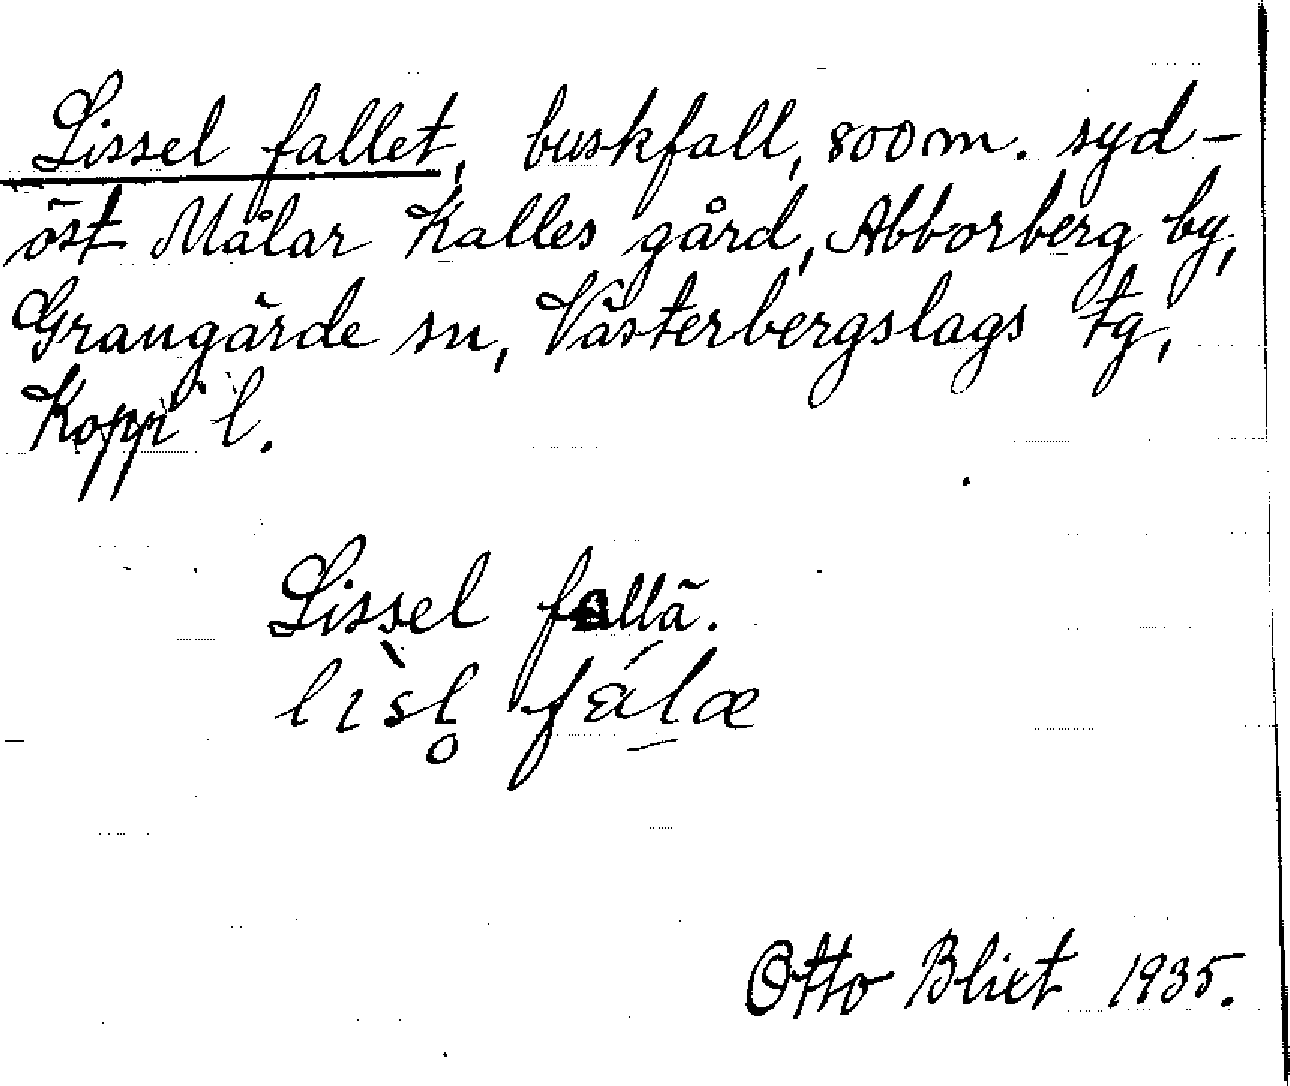 Lissel fallet, buskfall, 800 m. syd-
öst Målar Kalles gård, Abborberg by,
Grangärde sn, Västerbergslags tg,
Kopp l.
Lissel fallä.
lìsl̥ fálæ
Otto Blixt 1935.